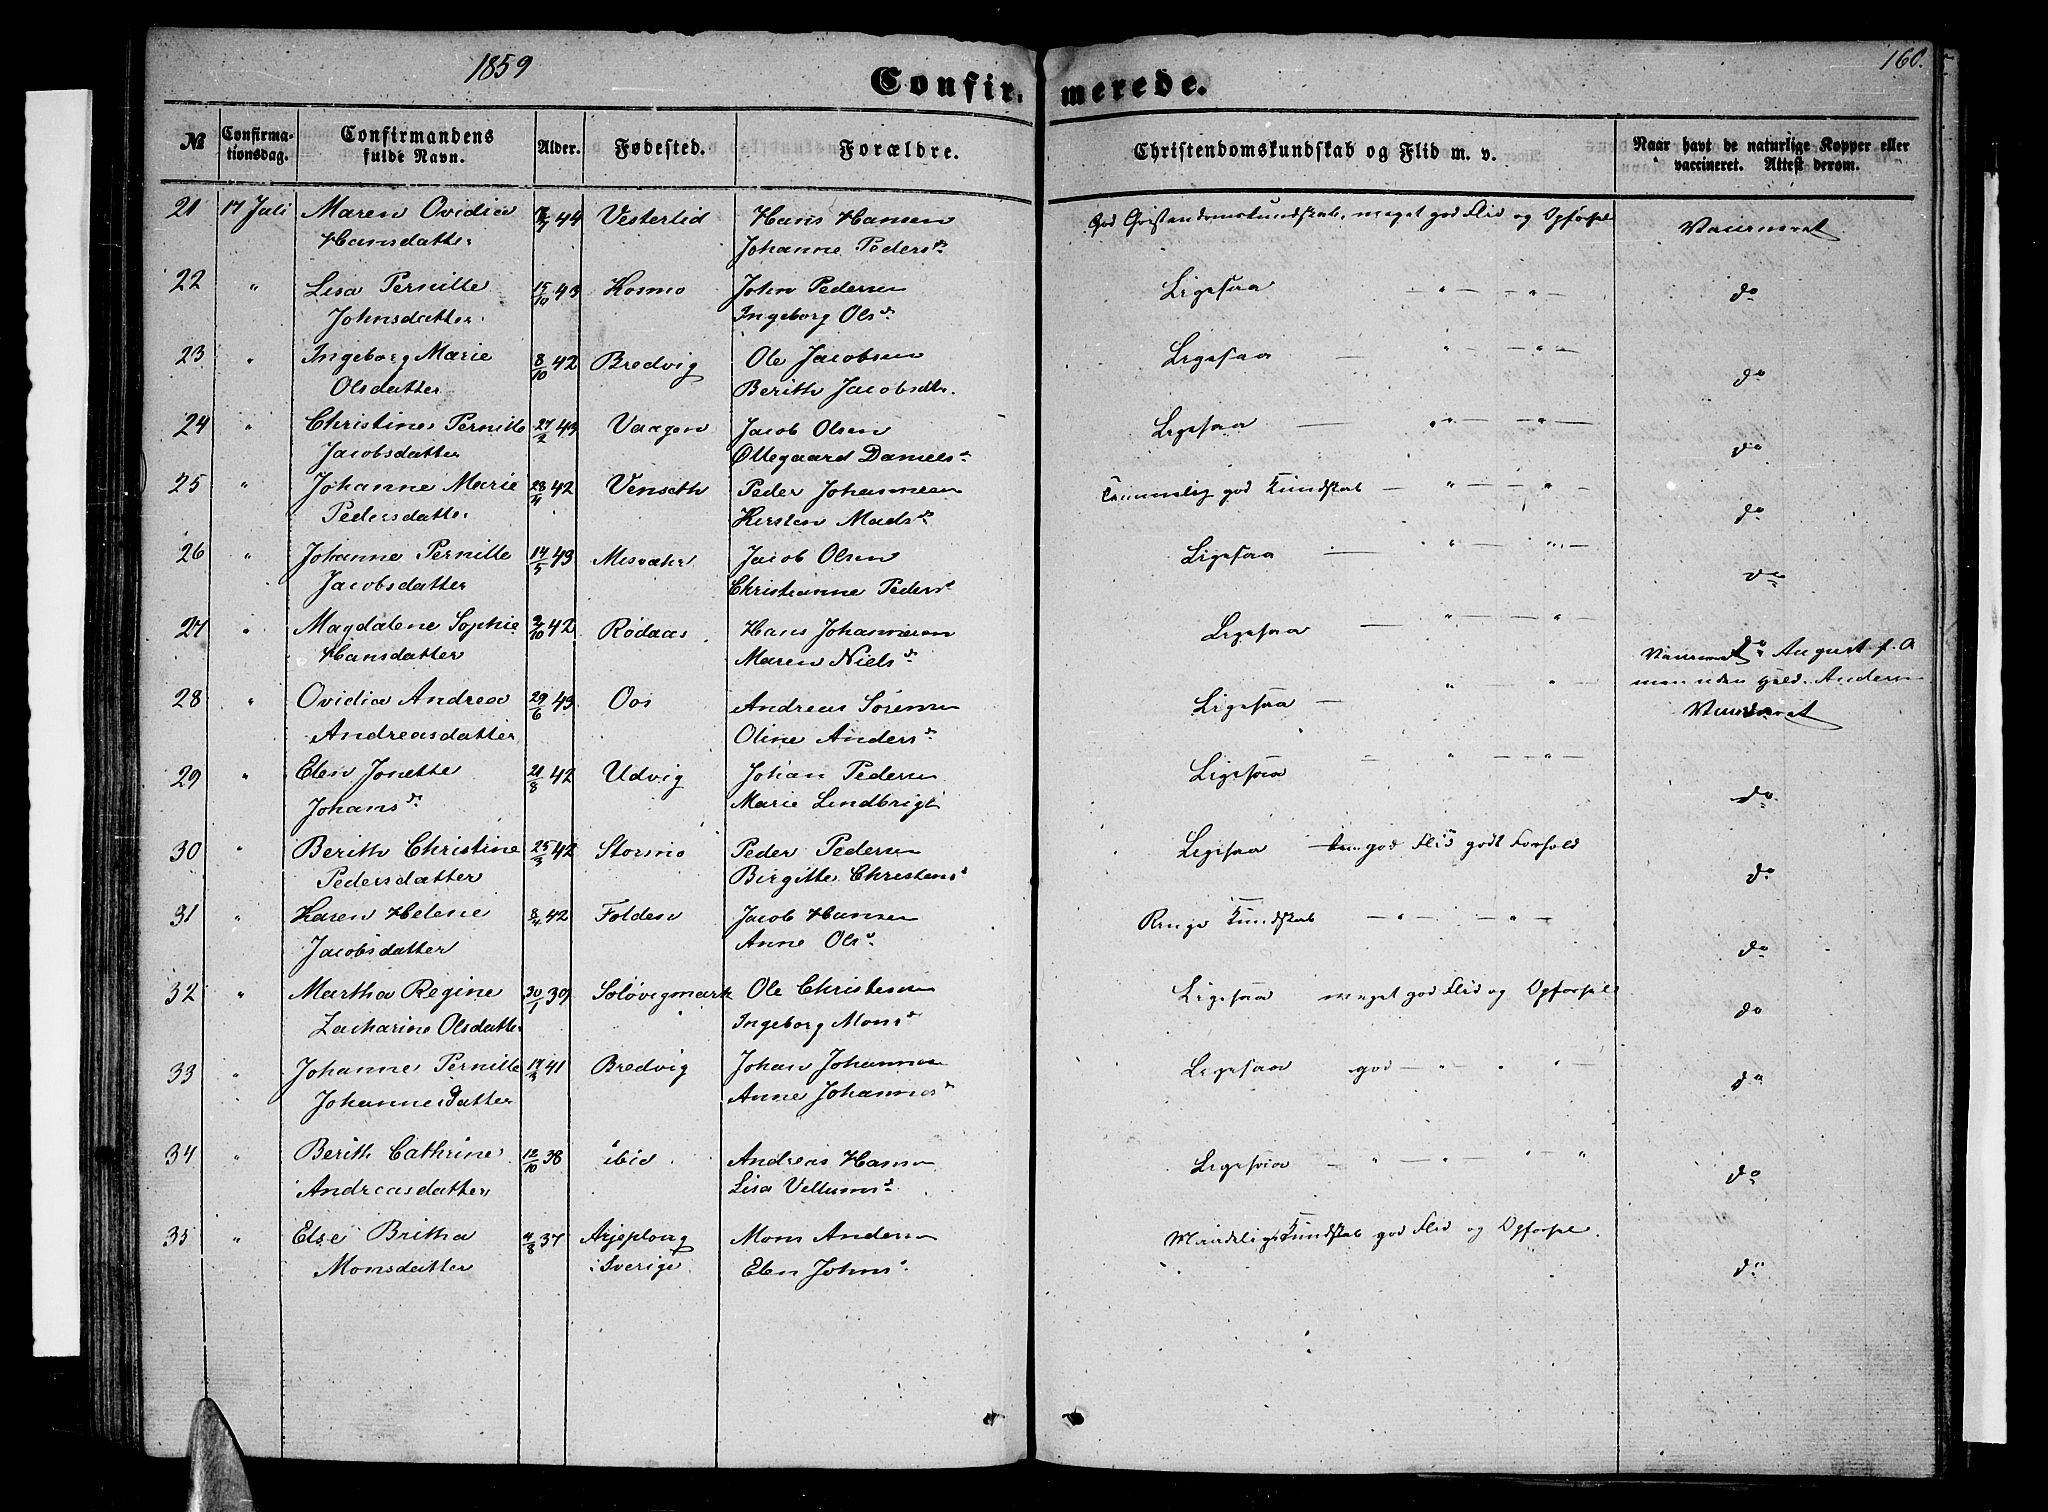 1859
160.
Confirmerede.
№
Confirma-
tionsdag.
Confirmandens
fulde Navn.
Alder.
Fødested.
Forældre.
Christendomskundskab og Flid m. v.
Naar havt de naturlige Kopper eller
vaccineret. Attest derom.
21 17 Juli Maren Ovidia 44 Vestertid Hans Hansen God Cristendomskundskab, meget god Flid og Opførsel
Hansdatter Johanne Peders d. Vaccineret
22 " Lisa Pernille 15/10 43 Kosmo John Pedersen Ligesaa — " — " —
Johnsdatter Ingeborg Ols d. do
23 " Ingeborg Marie 8/10 42 Bredvig Ole Jacobsen Ligesaa — " — " —
Olsdatter Berith Jacobsdtr. do
24 " Christine Pernille 27/2 43 Vaagen Jacob Olsen Ligesaa — " — " —
Jacobsdatter Ollegaard Daniels d. do
25 " Johanne Marie 28/4 42 Venseth Peder Johannesen Temmelig god Kundskab — " — " —
Pedersdatter Kirsten Mads d. do
26 " Johanne Pernille 14/5 43 Misvær Jacob Olsen Ligesaa — " — " —
Jacobsdatter Christianne Peders d. do
27 " Magdalene Sophie 2/10 42 Rødaas Hans Johannesen Ligesaa — " — " —
Hansdatter Maren Niels d. do
Vaccineret August f. A
men uden
28 " Ovidia Andrea 29/6 43 Oos Andreas Sørensen Ligesaa — " "
Andreasdatter Oline Anders d. Vaccineret
29 " Elen Jonette 21/8 42 Udvig Johan Pedersen Ligesaa — " — " —
Johans d. Marie Lindbrigt do
30 " Berith Christine 25/3 42 Stormo Peder Pedersen Ligesaa god Flid godt Forhold
Pedersdatter Birgitte Christens d. do
31 " Karen Helene 8/4 42 Folden Jacob Hansen Ringe Kundskab — " — " —
Jacobsdatter Anne Ols d. do
32 " Martha Regine 30/1 39 Soløvigmark Ole Christensen Ligesaa meget god Flid og Opførsel
Zacharine Olsdatter Ingeborg Mons d. do
33 " Johanne Pernille 17/3 41 Bredvig Johan Johannesen Ligesaa god — " — " " —
Johannesdatter Anne Johannes d. do
34 " Berith Cathrine 12/10 38 ibid Andreas Hansen Ligesaa — " — " — " — "
Andreasdatter Lisa Vellums d. do
35 " Else Britha 4/8 37 Arjeploug Mons Andersen Maadelig Kundskab god Flid og Opførsel.
Monsdatter i Sverige Elen Johns d. do